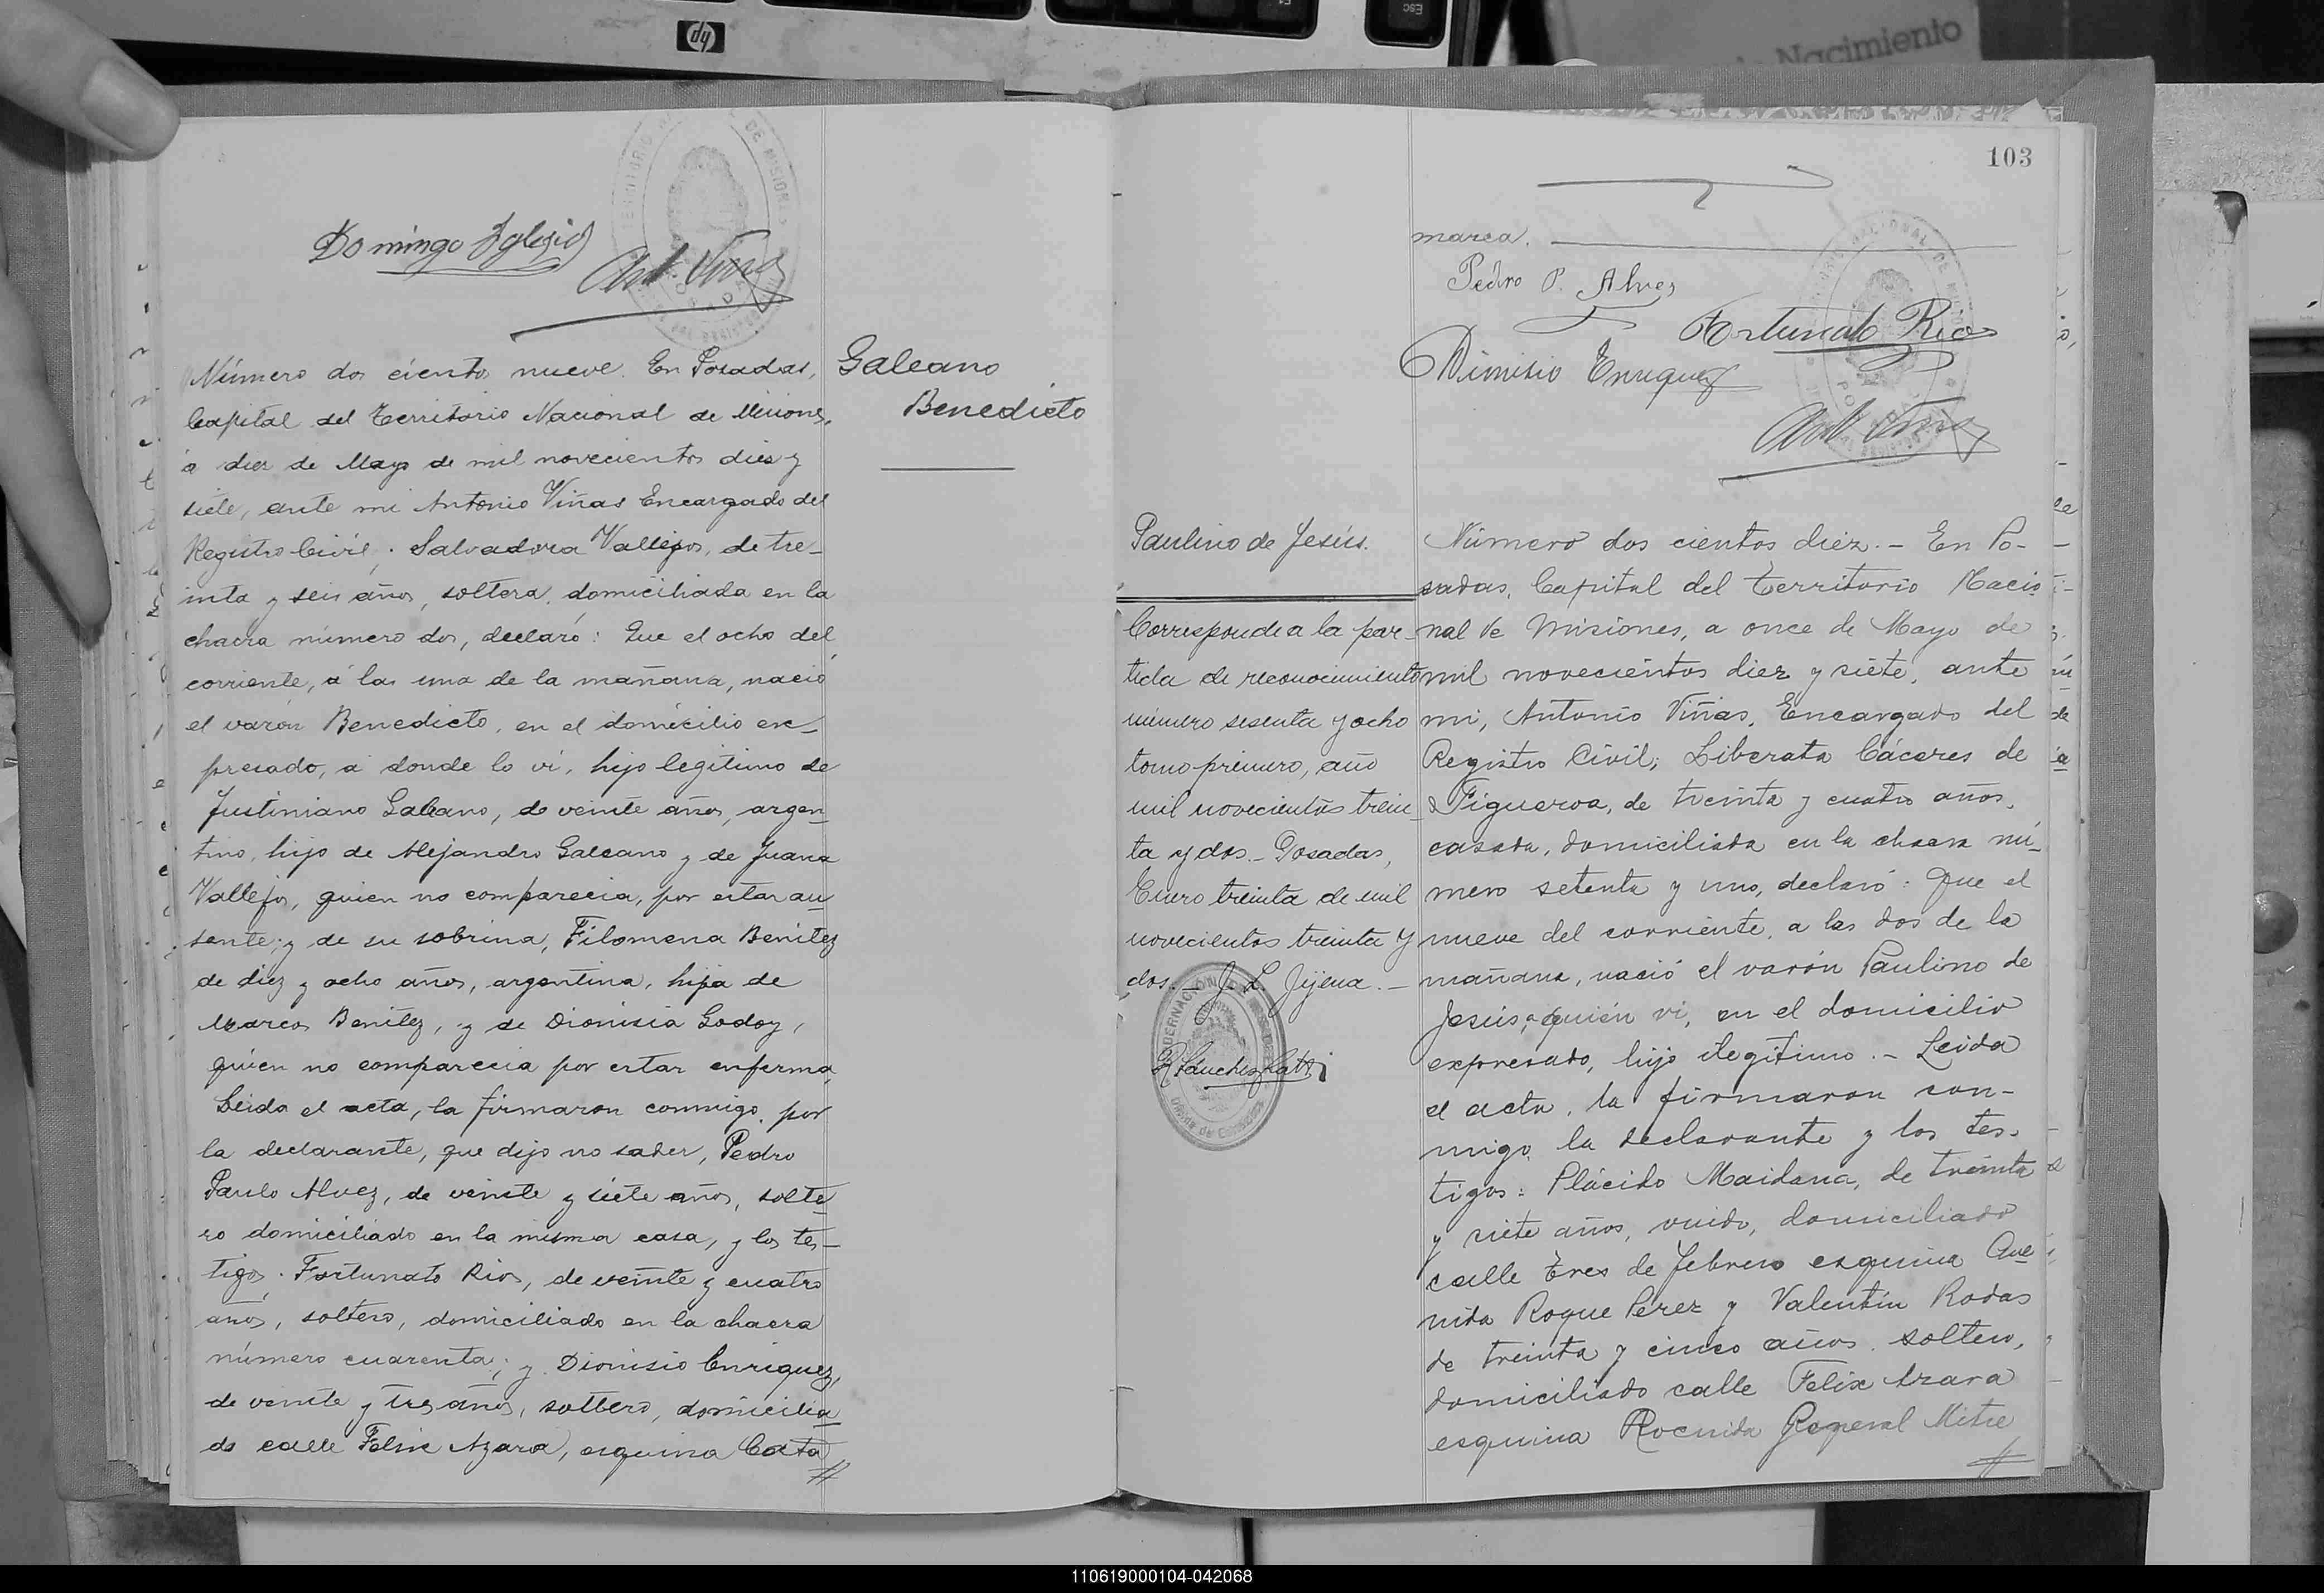 hp
Esc
Nacimiento
TERRITORIO DE MISIONES
Domingo Iglesias
Ant. Viñas
Número dos cientos nueve. En Posadas,
Capital del Territorio Nacional de Misiones,
a diez de Mayo de mil novecientos diez y
siete, ante mi Antonio Viñas Encargado del
Registro Civil; Salvadora Vallejos, de tre-
inta y seis años, soltera, domiciliada en la
chacra número dos, declaró: Que el ocho del
corriente, á las una de la mañana, nació
el varón Benedicto, en el domicilio ex-
presado, a donde lo vi, hijo legitimo de
Justiniano Galeano, de veinte años, argen-
tino, hijo de Alejandro Galeano y de Juana
Vallejos, quien no comparecia, por estar au-
sente; y de su sobrina, Filomena Benitez
de diez y ocho años, argentina, hija de
Marcos Benitez, y de Dionisia Godoy,
quien no comparecia por estar enferma,
Leida el acta, la firmaron conmigo, por
la declarante, que dijo no saber, Pedro
Paulo Alvez, de veinte y siete años, solte-
ro domiciliado en la misma casa, y los tes-
tigos: Fortunato Rios, de veinte y cuatro
años, soltero, domiciliado en la chacra
número cuarenta; y Dionisio Enriquez,
de veinte y tres años, soltero, domicilia
do calle Felix Azara, esquina Cata
Galeano
Benedicto
103
marca.
Pedro P. Alves
Fortunato Rios
Dionisio Enriquez
Ant. Viñas
Paulino de Jesús.
Corresponde a la par-
tida de reconocimiento
número sesenta y ocho
tomo primero, año
mil novecientos trein-
ta y dos.- Posadas,
Enero treinta de mil
novecientos treinta y
dos.- J. L. Jijena.-
GOBERNACIÓN DE MISIONES
Número dos cientos diez.- En Po-
sadas, Capital del territorio Nacio
nal de Misiones, a once de Mayo de
mil novecientos diez y siete, ante
mi, Antonio Viñas, Encargado del
Registro Civil; Liberata Cáceres de
Figueroa, de treinta y cuatro años,
casada, domiciliada en la chacra nú-
mero setenta y uno, declaró: Que el
nueve del corriente, a las dos de la
mañana, nació el varón Paulino de
Jesús, a quién vi, en el domicilio
expresado, hijo ilegítimo.- Leida
el acta, la firmaron con-
migo, la declarante y los tes-
tigos: Plácido Maidana, de treinta
y siete años, viudo, domiciliado
calle Tres de febrero esquina Ave
nida Roque Perez y Valentín Rodas
de treinta y cinco años, soltero,
domiciliado calle Felix Azara
esquina Avenida General Mitre
110619000104-042068